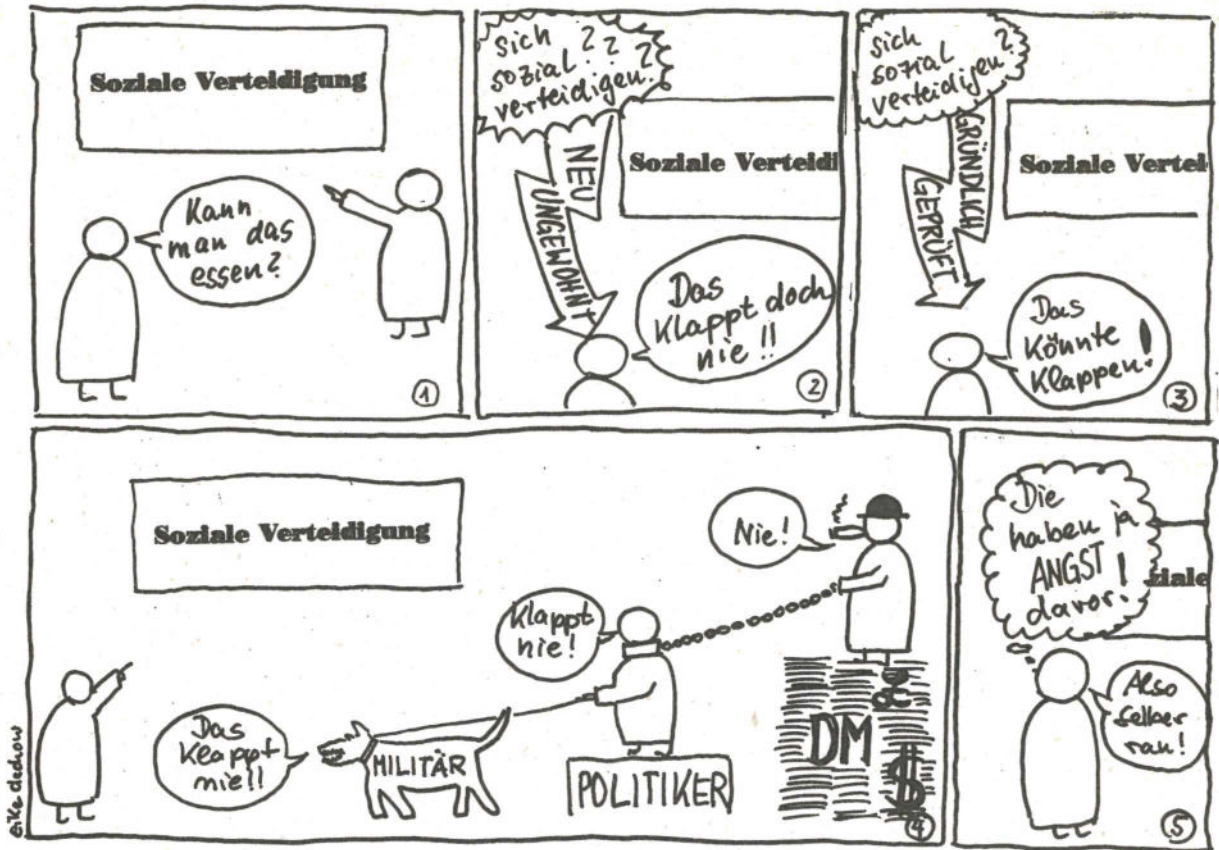 Soziale Verteidigung
Kann
man das
essen?
1
sich ? ?
sozial ?
verteidigen.
NEU
UNGEWOHNT
Soziale Verteidi
Das
klappt doch
nie!!
2
sich
sozial
verteidigen?
GRÜNDLICH
GEPRÜFT
Soziale Vertei
Das
könnte
klappen!
3
Soziale Verteidigung
Nie!
Klappt
nie!
Das
klappt
nie!!
MILITÄR
POLITIKER
DM
$
4
Die
haben ja
ANGST
davor!
ziale
Also
selber
ran!
5
eike dechow